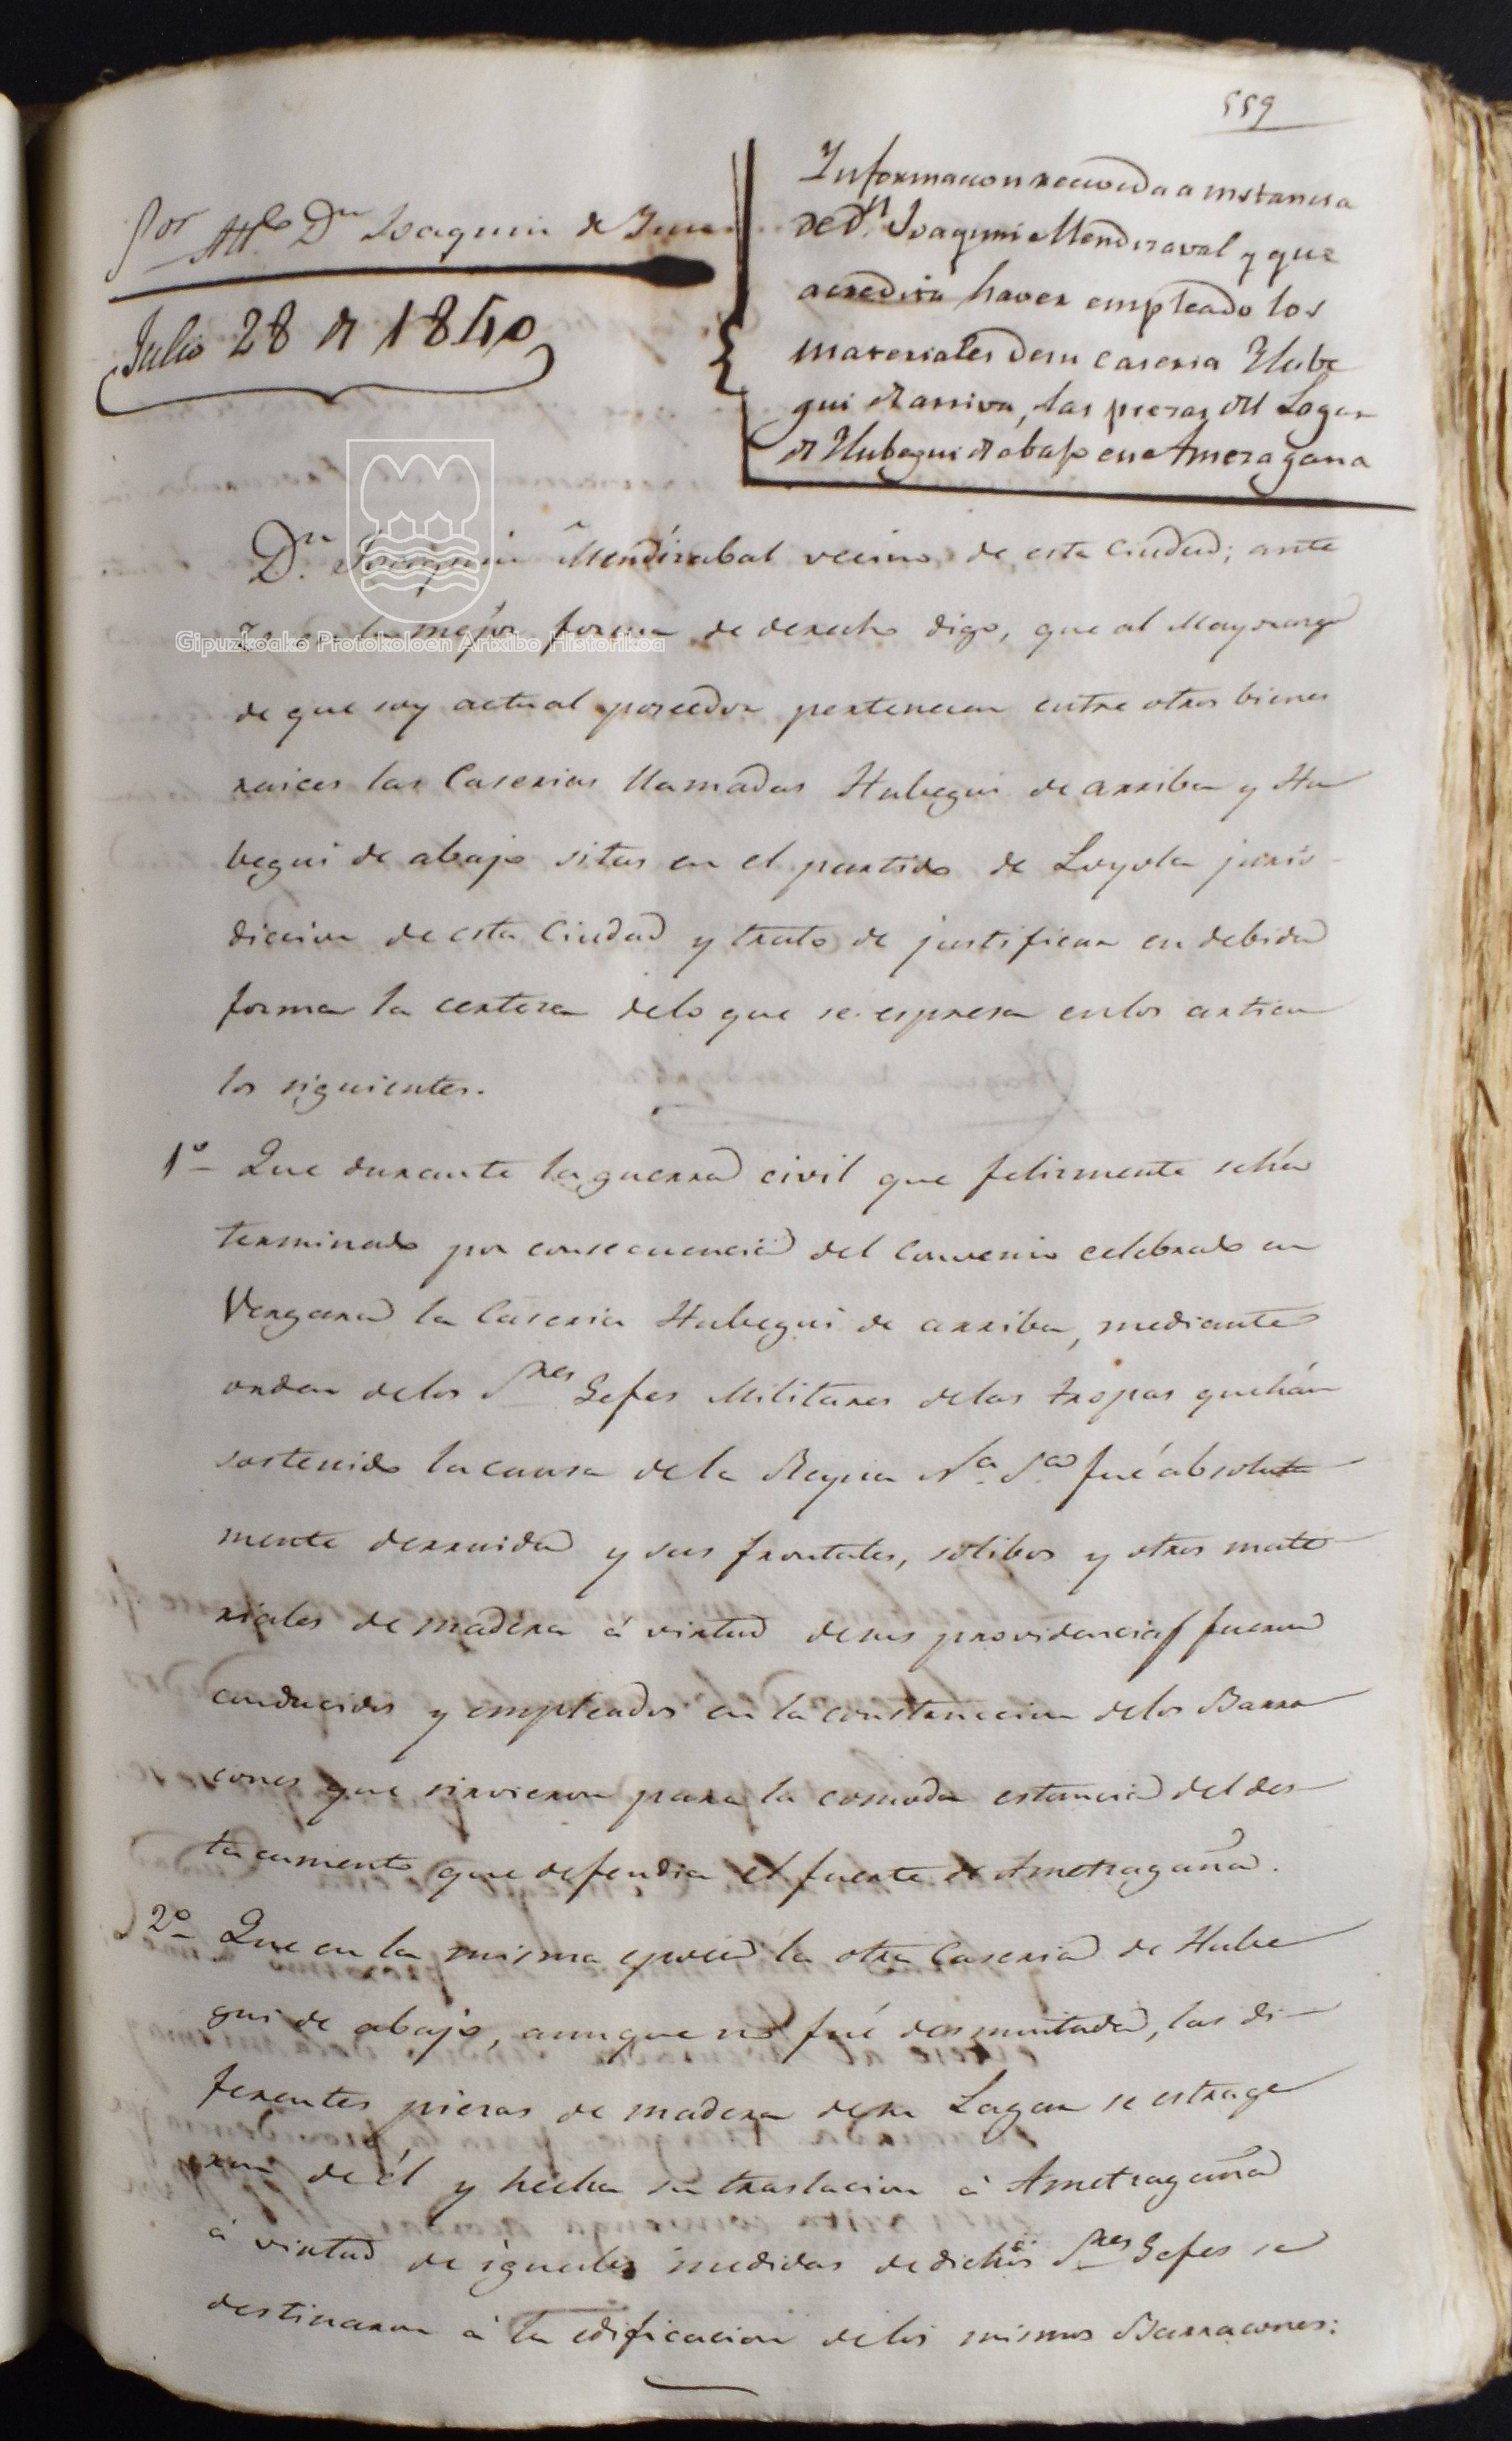 559
Por Atto Dn Joaquin de
Julio 28 de 1840
Informacion recivida a instancia
de Dn. Joaquin Mendizaval y que
acredita haver empleado los
materiales de su caseria Hube
gui de arriva, las piezas del Lagar
de Hubegui de abajo en Amezagana
Gipuzkoako Protokoloen Artxibo Historikoa
Dn. Joaquin Mendizabal vecino de esta Ciudad; ante
la mejor forma de derecho digo, que al Mayorazgo
de que soy actual poseedor pertenecen entre otros bienes
raices las Caserias llamadas Hubegui de arriba y Hu
begui de abajo sitas en el partido de Loyola juris-
diccion de esta Ciudad y trato de justificar en debida
forma la certeza delo que se espresa enlos articu
los siguientes.
1º Que durante la guerra civil que felizmente sehá
terminado por consecuencia del Convenio celebrado en
Vergara la Caseria Hubegui de arriba, mediante
orden delos Sres Gefes Militares delas tropas quehán
sostenido lacausa dela Reyna Na. Sa fué absoluta
mente derruida y sus frontales, solibos y otros mate
riales de madera á virtud desus providencias fueron
conducidos y empleados en la construccion delos Barra
cones que sirvieron para la comoda estancia del des-
tacamento que defendia el fuerte de Ametzagaña.
2º Que en la misma epoca la otra Caseria de Hube
gui de abajo, aunque no fué desmontada, las di-
ferentes piezas de madera desu Lagar se estrage
ron de él y hecha su traslacion á Ametzagaña
á virtud de iguales medidas dedichos Sres Gefes se
destinaron á la edificacion delos mismos Barracones: